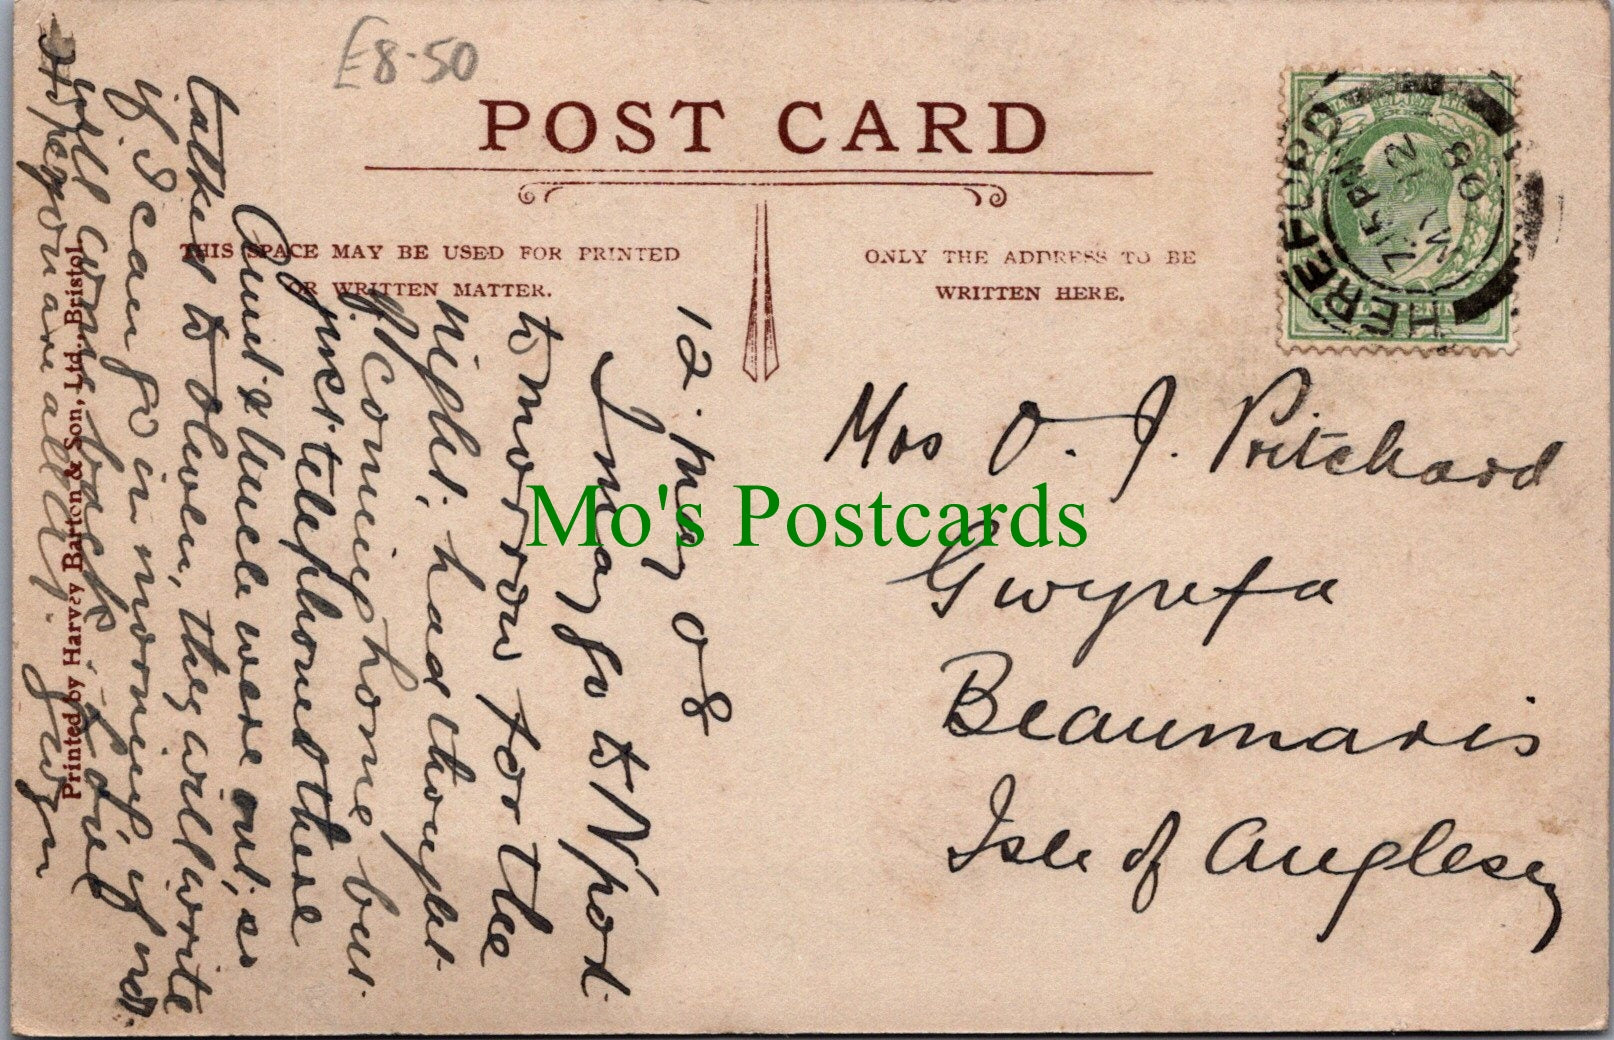 £8-50
POST CARD
THIS SPACE MAY BE USED FOR PRINTED
OR WRITTEN MATTER.
ONLY THE ADDRESS TO BE
WRITTEN HERE.
HEREFORD
7.15 PM
MY 12
08
12. May 08
I may go to N'port
tomorrow for the
night, had thought
of coming home but
just telephoned there
Aunt & Uncle were out, so
talked to Olwen, they will write
if I can go in morning, if not
will come back. Love
Hope you are all
Gwyn
Mrs O. J. Pritchard
Gwynfa
Beaumaris
Isle of Anglesey
Printed by Harvey Barton & Son, Ltd., Bristol.
Mo's Postcards